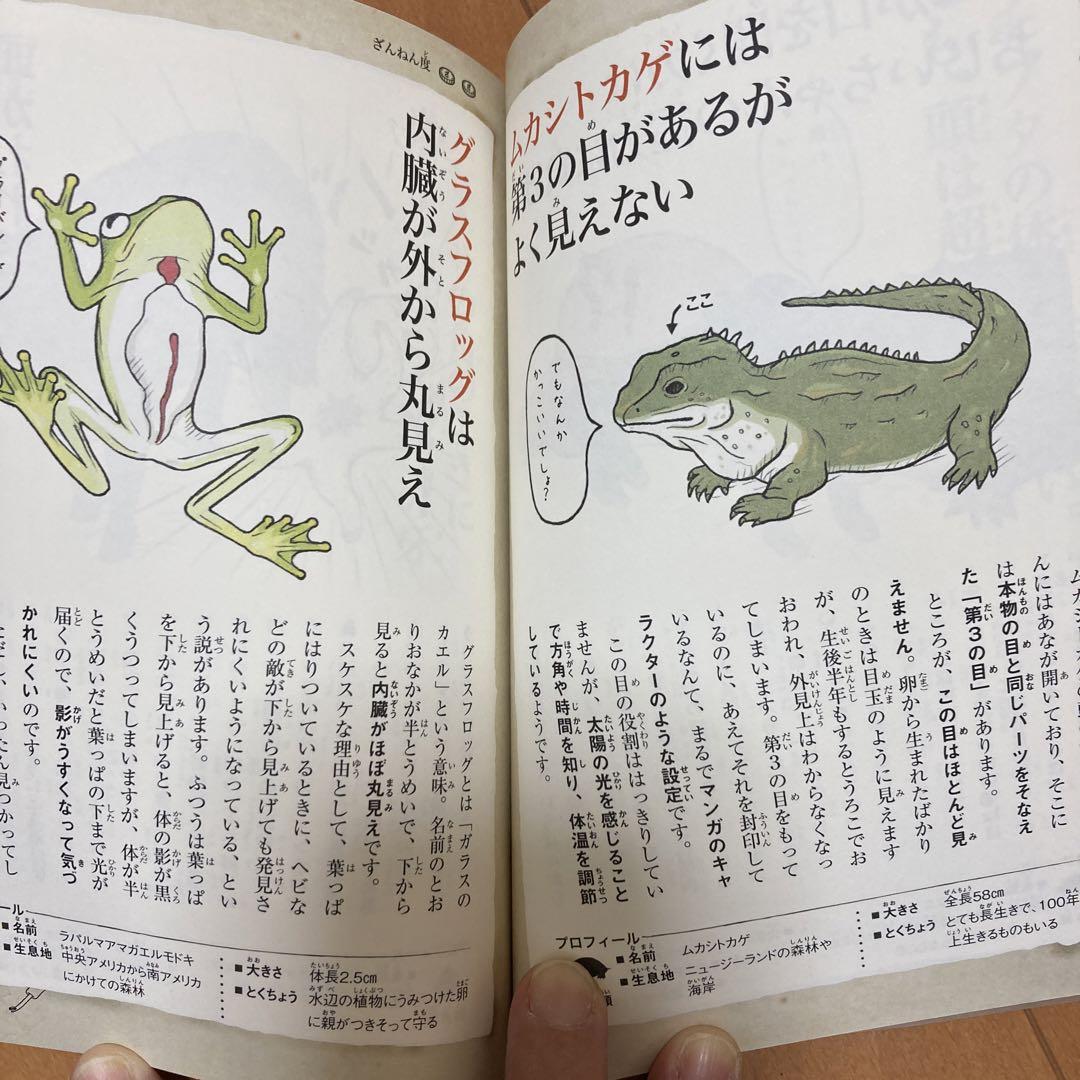 ムカシトカゲには
第3の目があるが
よく見えない
ここ
でもなんか
かっこいいでしょ？
んにはあなが開いており、そこに
は本物の目と同じパーツをそなえ
た「第3の目」があります。
ところが、この目はほとんど見
えません。卵から生まれたばかり
のときは目玉のように見えます
が、生後半年もするとうろこでお
おわれ、外見上はわからなくなっ
てしまいます。第3の目をもって
いるのに、あえてそれを封印して
いるなんて、まるでマンガのキャ
ラクターのような設定です。
この目の役割ははっきりしてい
ませんが、太陽の光を感じること
で方角や時間を知り、体温を調節
しているようです。
プロフィール
■名前 ムカシトカゲ
■生息地 ニュージーランドの森林や
海岸
■大きさ 全長58cm
■とくちょう とても長生きで、100年
上生きるものもいる
ざんねん度
グラスフロッグは
内臓が外から丸見え
グラスフロッグとは「ガラスの
カエル」という意味。名前のとお
りおなかが半とうめいで、下から
見ると内臓がほぼ丸見えです。
スケスケな理由として、葉っぱ
にはりついているときに、ヘビな
どの敵が下から見上げても発見さ
れにくいようになっている、とい
う説があります。ふつうは葉っぱ
を下から見上げると、体の影が黒
くうつってしまいますが、体が半
とうめいだと葉っぱの下まで光が
届くので、影がうすくなって気づ
かれにくいのです。
ール
■名前 ラパルマアマガエルモドキ
■生息地 中央アメリカから南アメリカ
にかけての森林
■大きさ 体長2.5cm
■とくちょう 水辺の植物にうみつけた卵
に親がつきそって守る